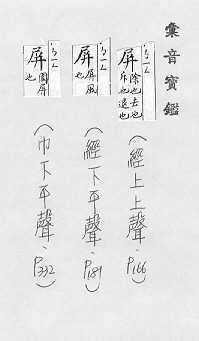 彙音寶鑑
屏
除也去也
斥也退也
(經上上聲·P166)
屏
屏風
也
(經下平聲·P189)
屏
圍屏
也
(巾下平聲·P332)